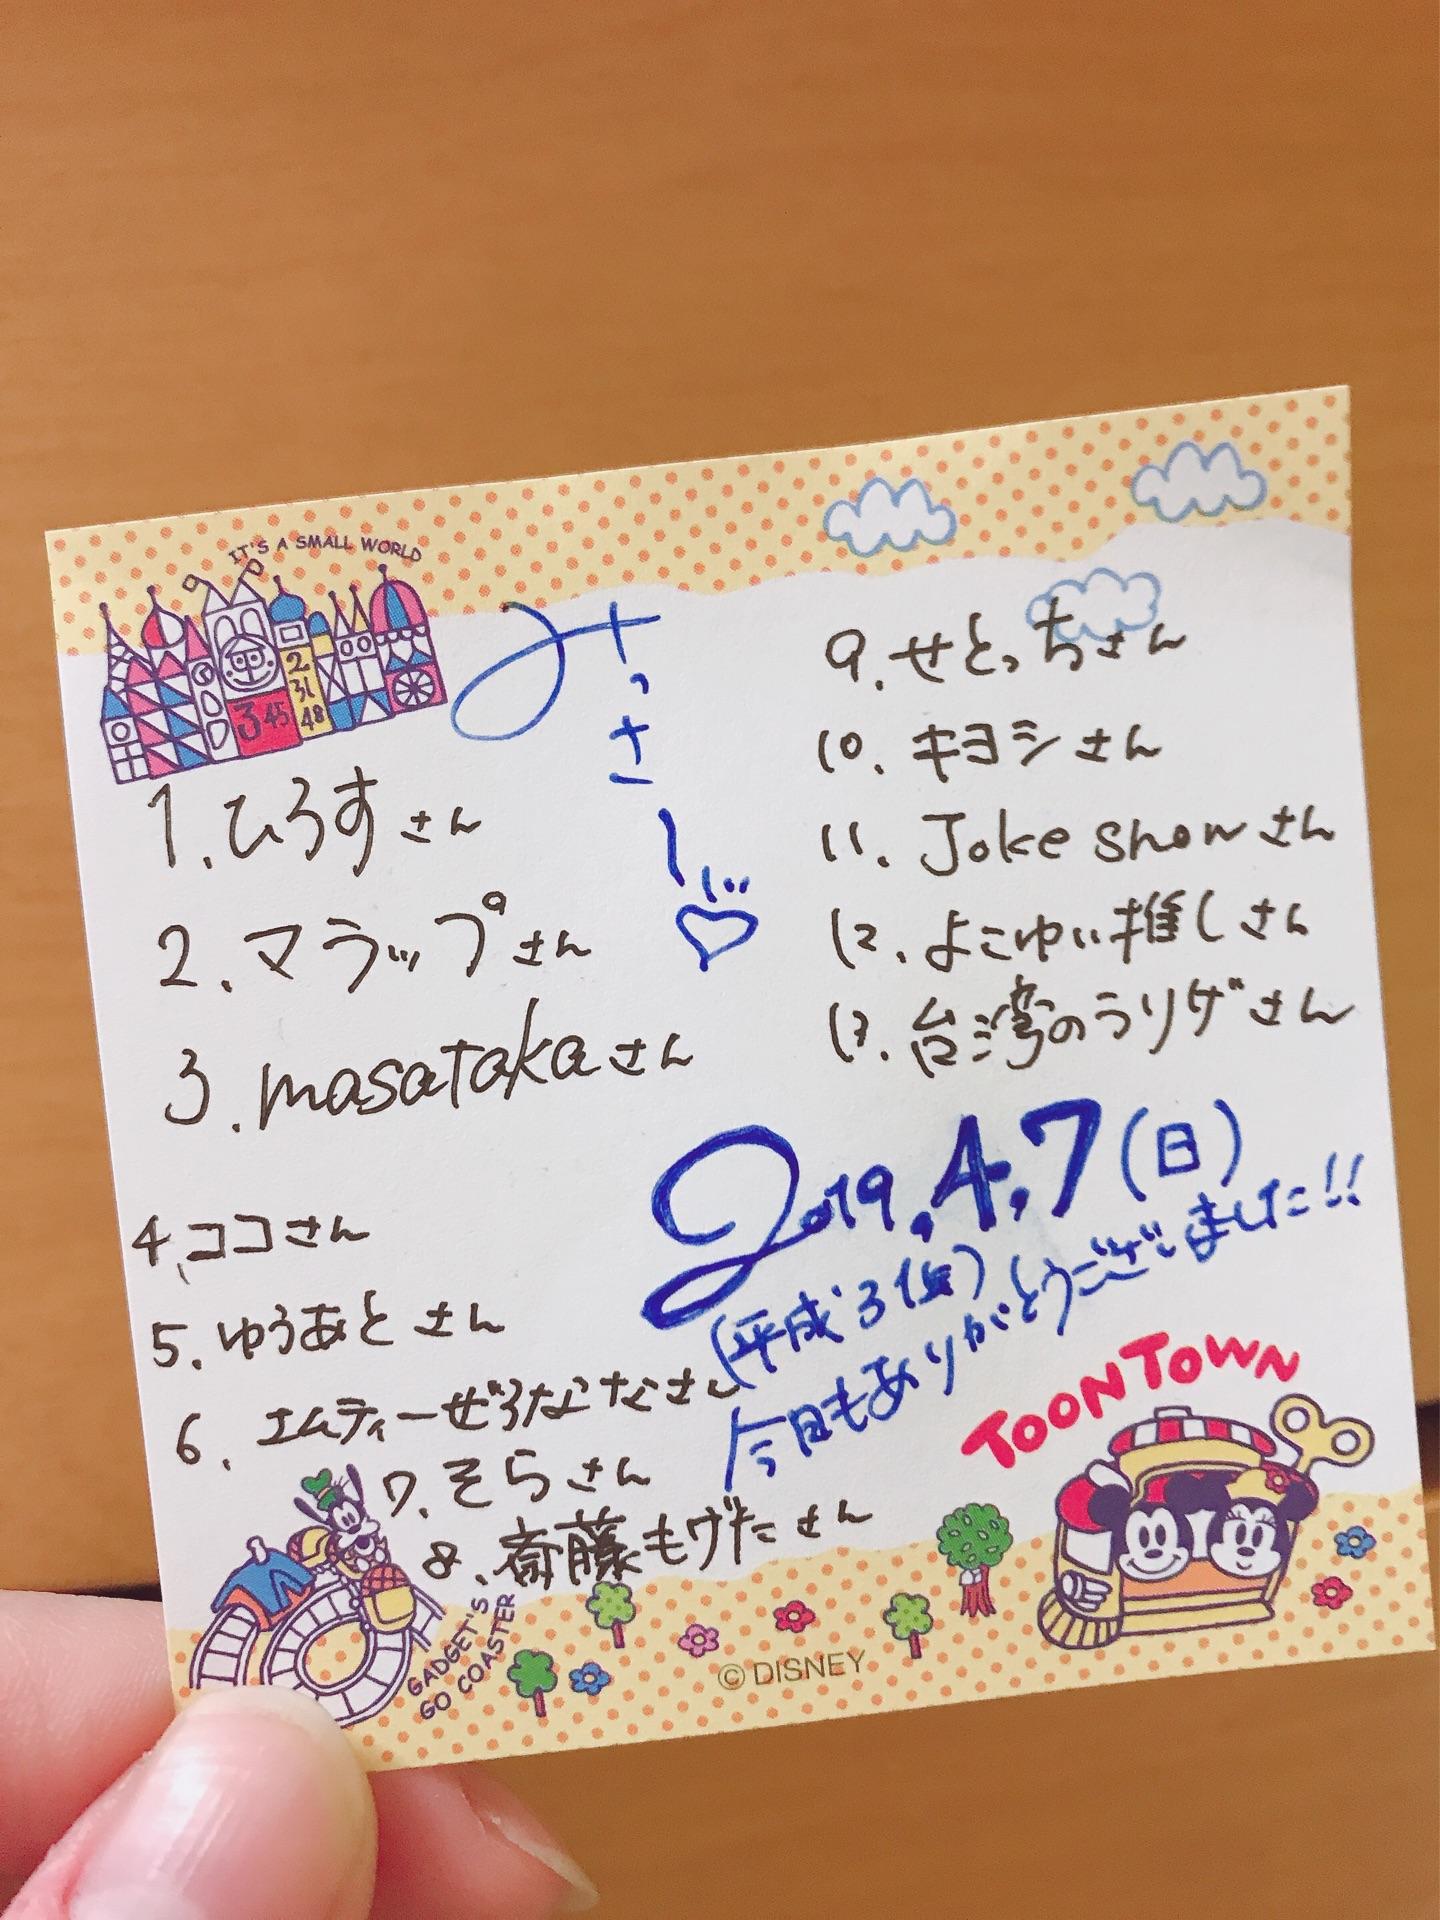 IT'S A SMALL WORLD
2
31
3 45 48
みっさー
1.ひろすさん
2.マラップさん
3.masatakaさん
4.ココさん
5.ゆうあとさん
6.エムティーぜろななさん
7.そらさん
8.斎藤もげたさん
9.せとっちさん
10.キヨシさん
11.Joke showさん
12.よこゆい推しさん
13.台湾のうりげさん
2019.4.7(日)
(平成31年)
今日もありがとうございました!!
TOONTOWN
GADGET'S
GO COASTER
© DISNEY